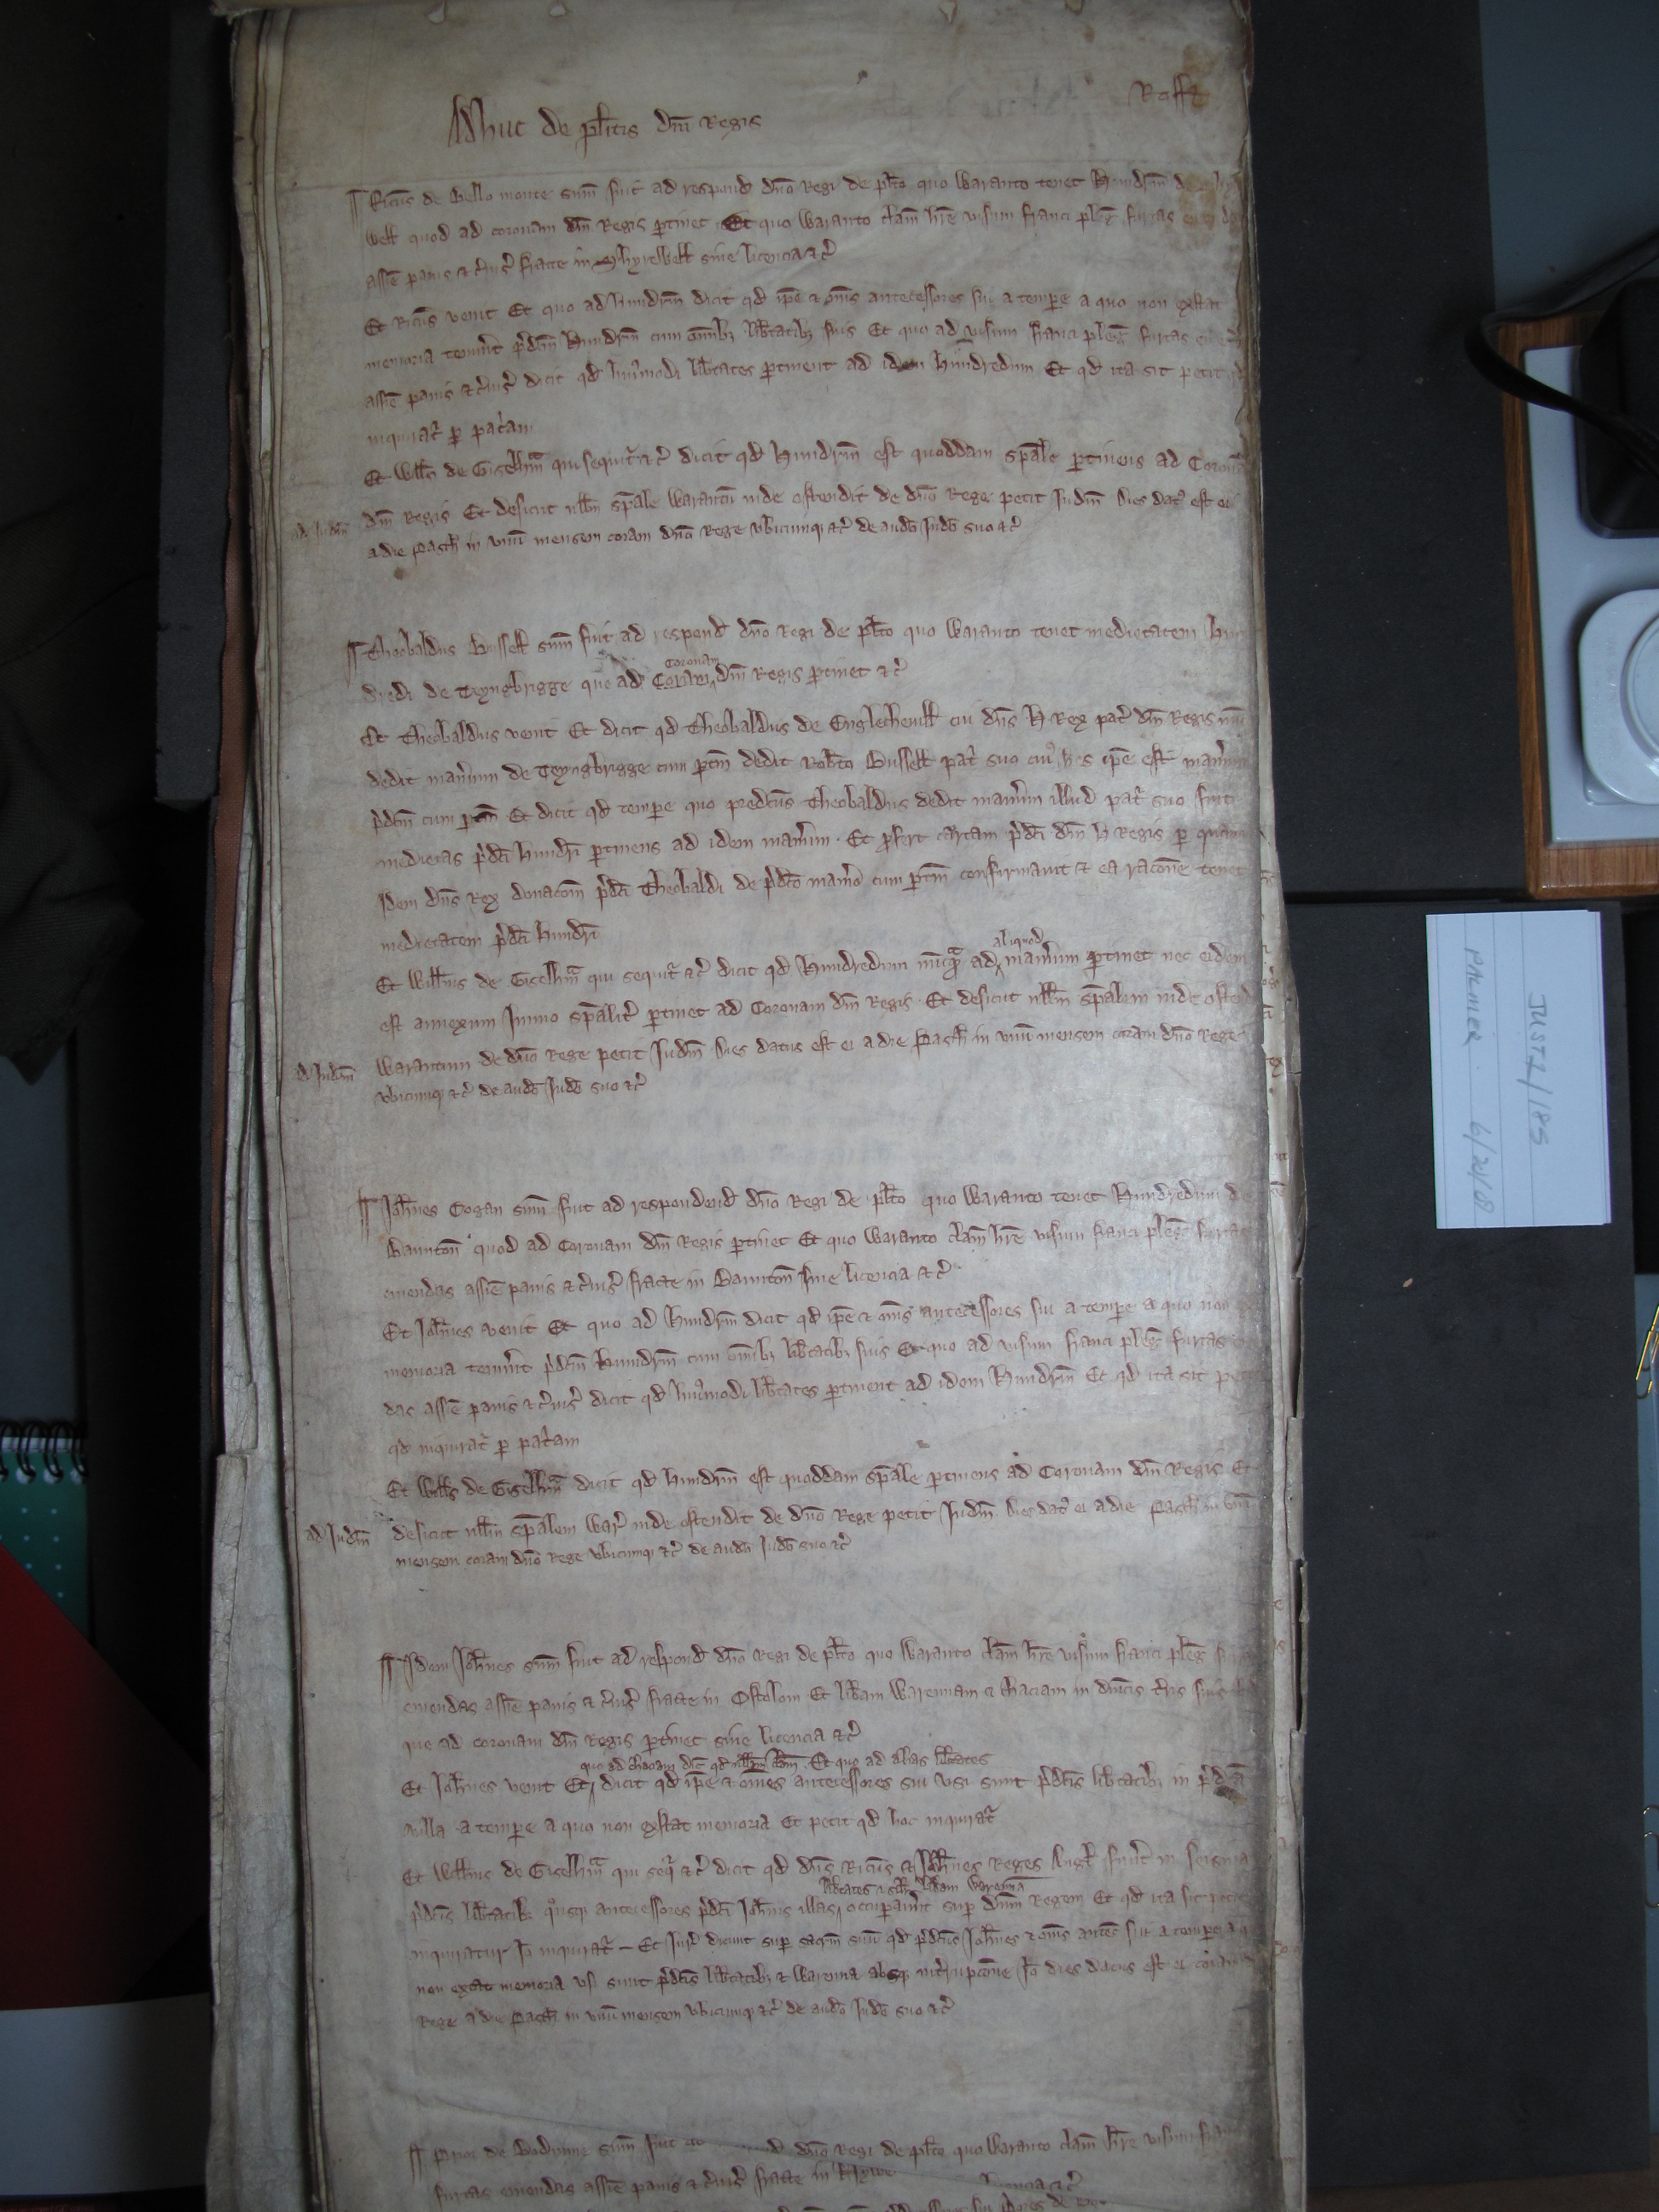 Roff
Adhuc de pl̄itis dn̄i Regis
Ric̄us de Bello monte sum̄ fuit ad respond dn̄o Regi de pl̄ito quo Waranto tenet Hundr̄m
Well quod ad coronam dn̄i Regis ꝑtinet Et quo Waranto clam̄ hr̄e visum franci pleḡ furcas
assīe panis ⁊ c̄uis̄ fracte in Shyrewell sine licencia ⁊c̄
Et Ric̄us venit Et quo ad hundr̄m dicit qd ip̄e ⁊ om̄s antecessores sui a temꝑe a quo non extat
memoria tenuer̄t p̄dc̄m Hundr̄m cum om̄ib; lib̄tatib; suis Et quo ad visum franci pleḡ furcas
assīe panis ⁊ c̄uis̄ dicit qd hui9modi lib̄tates ꝑtinent ad idem hundredum Et qd ita sit petit
inquirat̄ ꝑ pat̄am
Et Will̄s de Giselhm̄ qui sequit̄ ⁊c̄ dicit qd Hundr̄m est quoddam sp̄ale ꝑtinens ad Coronam
dn̄i Regis Et desicut null̄m sp̄ale Warantū inde ostendit de dn̄o Rege petit Iudm̄ Dies dat9 est ei
ad Iudm̄
a die Pasch̄ in unū mensem coram dn̄o Rege ubicumq; ⁊c̄ de audō Iudō suo ⁊c̄
Theobaldus Bussell sum̄ fuit ad respond dn̄o Regi de pl̄ito quo Waranto tenet medietatem Hun
dredi de Teyngbrigge que ad Coram Coronam dn̄i Regis ꝑtinet ⁊c̄
Et Theobaldus venit Et dicit qd Theobaldus de Englechevill cui dn̄s H Rex pat̄ dn̄i Regis nūc
dedit man̄ium de Teyngbrigge cum ꝑtin̄ dedit Rob̄to Bussell pat̄ suo cui9 h̄es ip̄e est man̄ium
p̄dc̄m cum ꝑtin̄ Et dicit qd temꝑe quo predc̄us Theobaldus dedit man̄ium illud pat̄ suo fuit
medietas p̄dc̄i hundr̄i ꝑtinens ad idem man̄ium. Et ꝓfert cartam p̄dc̄i dn̄i H Regis ꝑ quam
Idem dn̄s Rex donacōm p̄dc̄i Theobaldi de p̄dc̄o man̄io cum ꝑtin̄ confirmavit ⁊ ea racōne tenet
medietatem p̄dc̄i hundr̄i
Et Will̄us de Giselhm̄ qui sequit̄ ⁊c̄ dicit qd Hundredum nūqam ad aliquod man̄ium ꝑtinet nec eidem
est annexum Immo sp̄alit̄ ꝑtinet ad Coronam dn̄i Regis. Et desicut null̄m sp̄alem inde ostend
Warantum de dn̄o Rege petit Iudm̄ Dies datus est ei a die Pasch̄ in unū mensem coram dn̄o Rege
ad Iudm̄
ubicumq; ⁊c̄ de audō Iudō suo ⁊c̄
Joh̄nes Cogan sum̄ fuit ad respondend dn̄o Regi de pl̄ito quo Waranto tenet Hundredum de
Bauntōn quod ad Coronam dn̄i Regis ꝑtinet Et quo Waranto clam̄ hr̄e visum franci pleḡ furcas
emendas assīe panis ⁊ c̄uis̄ fracte in Bauntōn sine licencia ⁊c̄
Et Joh̄nes venit Et quo ad Hundr̄m dicit qd ip̄e ⁊ om̄s antecessores sui a temꝑe a quo non
memoria tenuer̄t p̄dc̄m Hundr̄m cum om̄ib; lib̄tatib; suis Et quo ad visum franci pleḡ furcas
das assīe panis ⁊ c̄uis̄ dicit qd hui9modi lib̄tates ꝑtinent ad idem Hundr̄m Et qd ita sit
qd inquirat̄ ꝑ pat̄am
Et Will̄s de Giselhm̄ dicit qd hundr̄m est quoddam sp̄ale ꝑtinens ad Coronam dn̄i Regis Et
desicut null̄m sp̄alem War̄ inde ostendit de dn̄o Rege petit Iudm̄ Dies dat9 ei a die Pasch̄ in unū
ad Iudm̄
mensem coram dn̄o Rege ubicumq; ⁊c̄ de audō Iudō suo ⁊c̄
Idem Joh̄nes sum̄ fuit ad respond dn̄o Regi de pl̄ito quo Waranto clam̄ hr̄e visum franci pleḡ
emendas assīe panis ⁊ c̄uis̄ fracte in Ostolom Et lib̄am Warennam ⁊ chaciam in dn̄icis t̄ris suis
que ad coronam dn̄i Regis ꝑtinet sine licencia ⁊c̄
quo ad chaciam dic̄ qd null̄m clam̄. Et quo ad alias lib̄tates
Et Joh̄nes venit Et dicit qd ip̄e ⁊ om̄es antecessores sui usi sunt p̄dc̄is lib̄tatib; in p̄dc̄a
villa a temꝑe a quo non extat memoria Et petit qd hoc inquirat̄
Et Will̄us de Giselhm̄ qui seq̄ ⁊c̄ dicit qd dn̄s Ric̄us ⁊ Joh̄nes Reges Angl̄ fuer̄t in seisina
lib̄tates ⁊ lib̄am Warennā
p̄dc̄is lib̄tatib; quousq; antecessores p̄dc̄i Joh̄nis illas occupaver̄t suꝑ dn̄um Regem Et qd ita sit petit
inquiratur Io inquirat̄ – Et Iur̄ dicunt suꝑ sacr̄m suū qd p̄dc̄us Joh̄nes ⁊ om̄s antec̄es sui a tempore a quo
non extat memoria usi sunt p̄dc̄is lib̄tatib; ⁊ Warenna absq; int̄rupcōne Io dies datus est ei coram
Rege a die Pasch̄ in unū mensem ubicumq; ⁊c̄ de audō Iudō suo ⁊c̄
Prior de Bodmine sum̄ fuit dn̄o Regi de pl̄ito quo Waranto clam̄ hr̄e visum
furcas emendas assīe panis ⁊ c̄uis̄ fracte in licencia ⁊c̄
JUST 1/185
PALMER 6/21/18